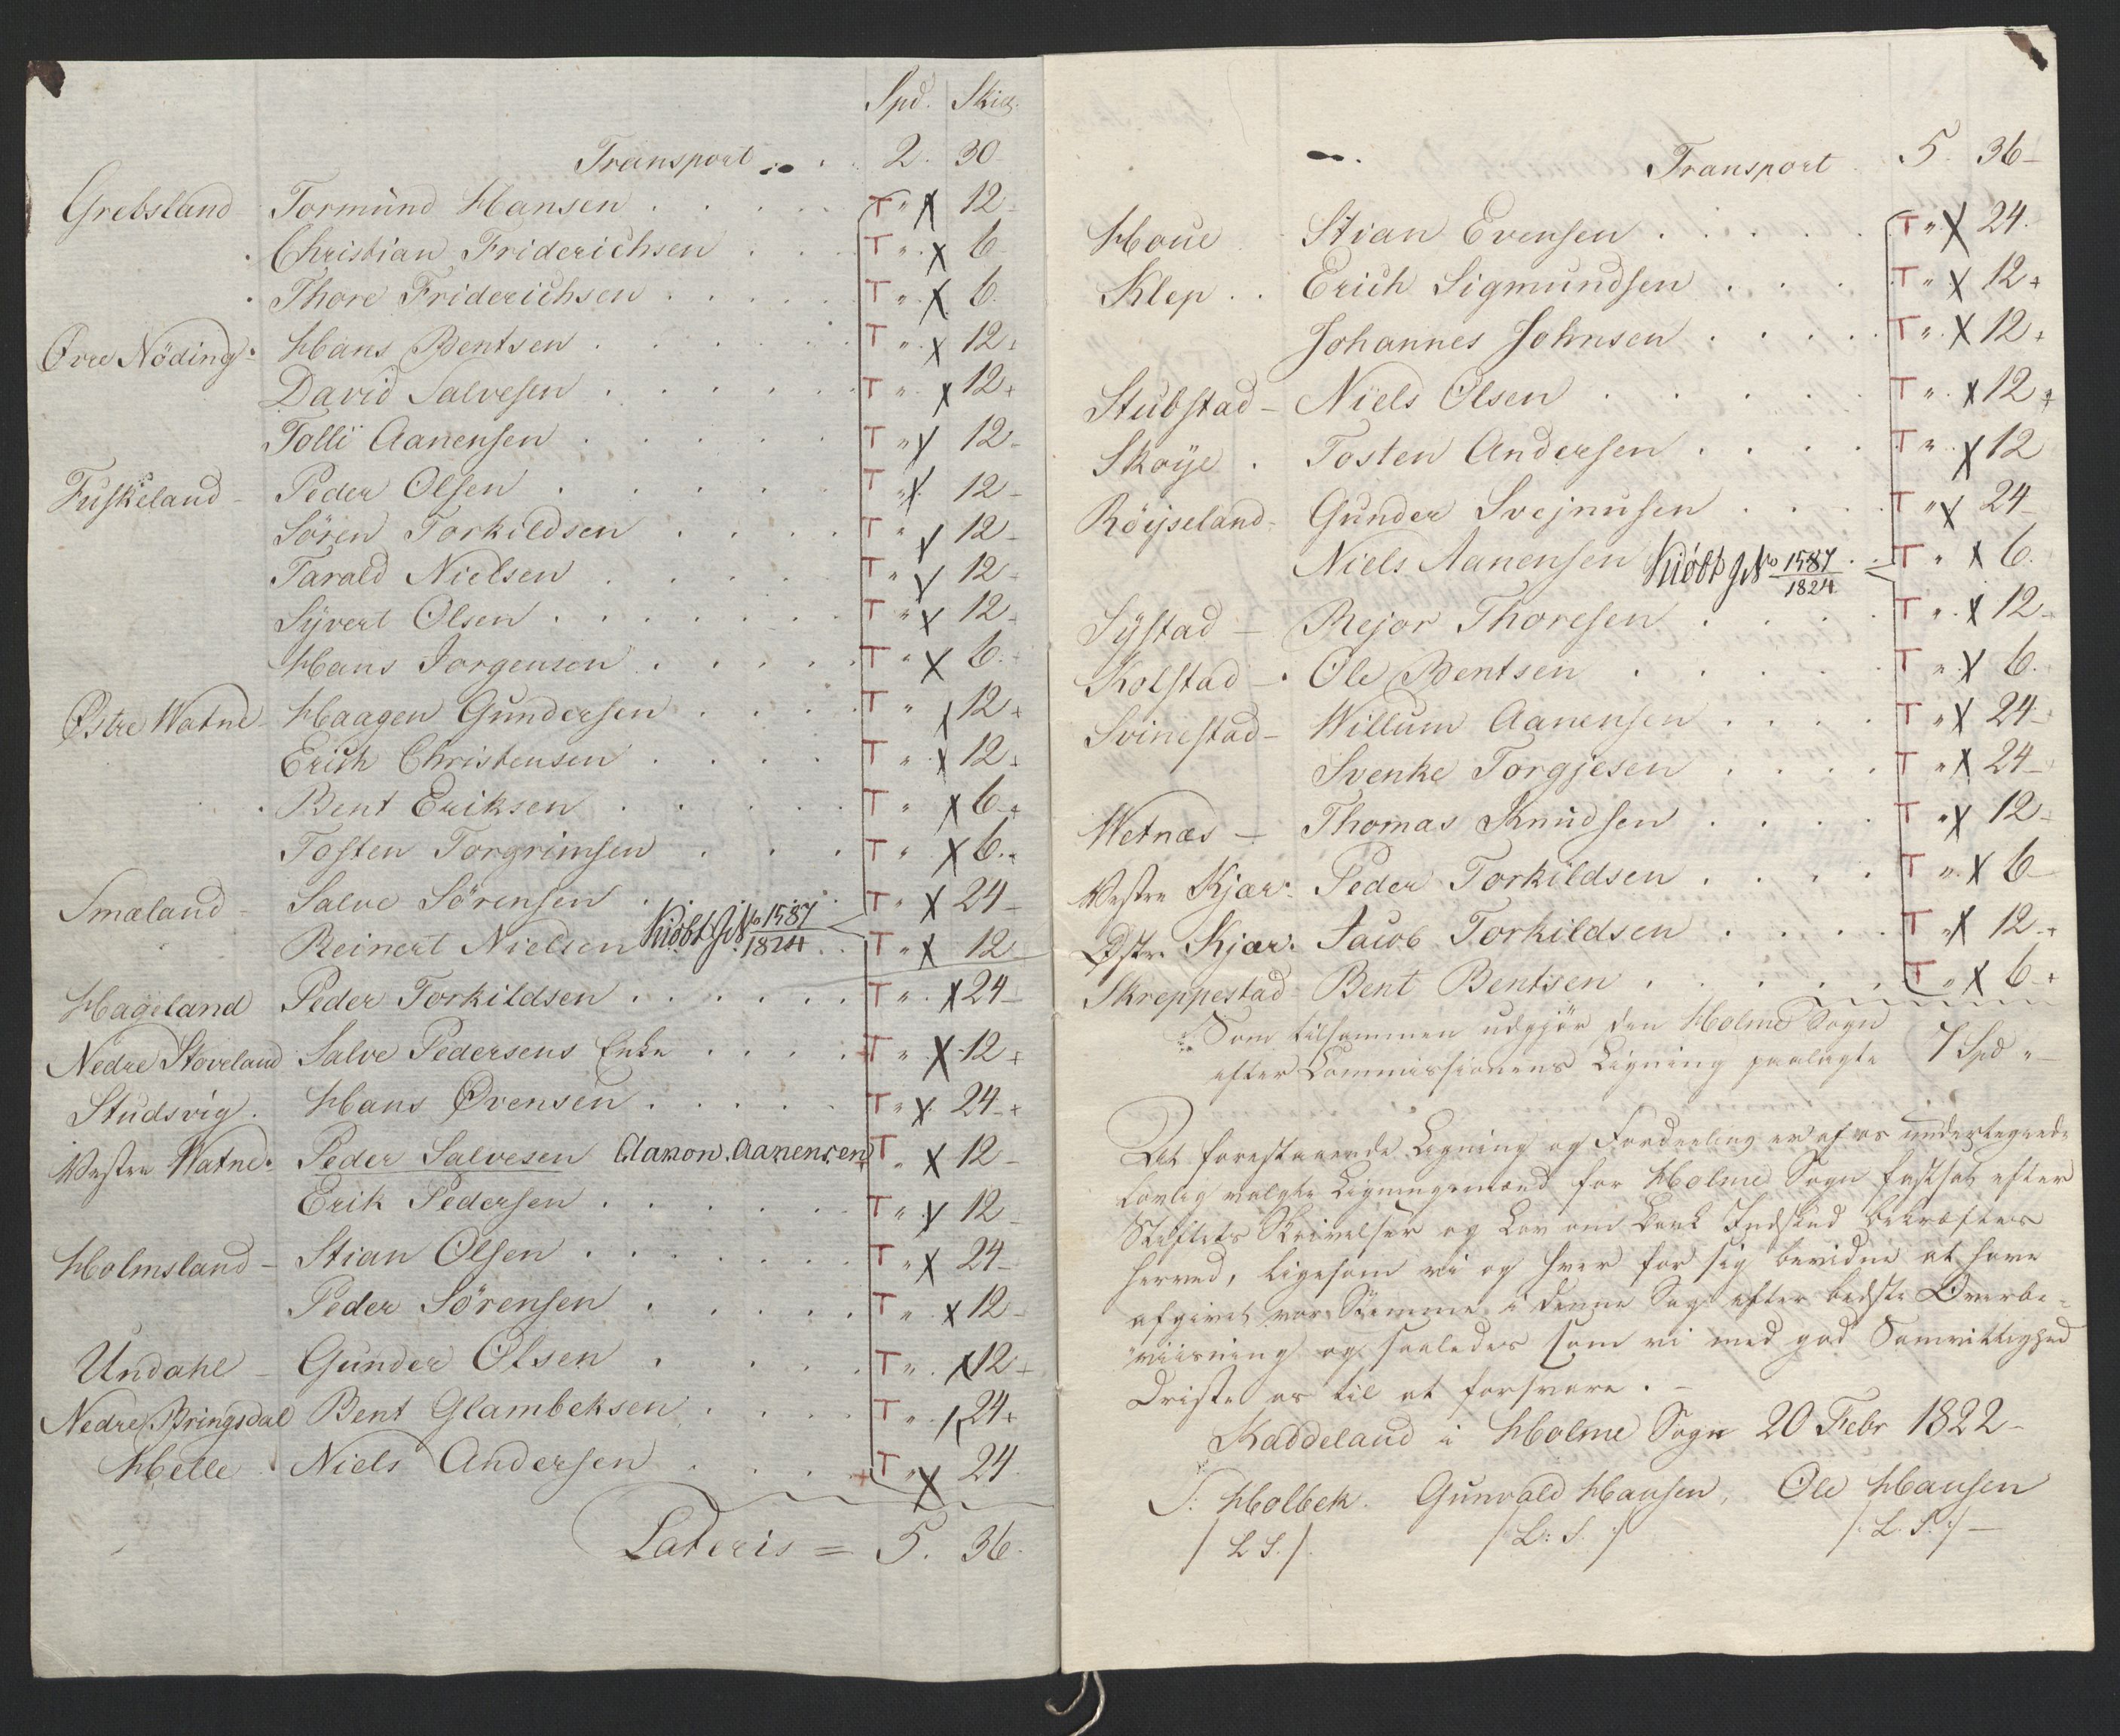 Spd. Skill.
Transport . . 2. 30
Grebsland Tormund Hansen . . . . . T " X 12
Christian Friderichsen . . . T " X 6
Thore Friderichsen . . . . . T " X 6.
Øvre Nöding Hans Bentsen . . . . . . T " X 12
David Salvesen . . . . . . T " X 12
Tolli Aanensen . . . . . T " X 12
Fuskeland Peder Olsen . . . . . T " X 12
Sören Torkildsen . . . . T " X 12
Tarald Nielsen . . . . T " X 12
Syvert Olsen . . . . . . . T " X 12
Hans Jorgensen . . . . . T " X 6.
Østre Watne Haagen Gundersen . . . . T " X 12
Erich Christensen . . . . T " X 12
Bent Eriksen . . . . . T " X 6
Tosten Torgrimsen . . . T " X 6.
Smæland Salve Sörensen . . T " X 24
Reinert Nielsen Kiöbt JNo 1587/1824 . . T " X 12
Hageland Peder Torkildsen . . . . . . T " X 24
Nedre Stoveland Salve Pedersens Enke . . . . T " X 12
Studsvig. Hans Øvensen . . . . . T " X 24
Vestre Watne. Peder Salvesen Aanon Aanensen T " X 12
Erik Pedersen . . . . . . T " X 12
Holmsland Stian Olsen . . . . . . T " X 24
Peder Sörensen . . . . . T " X 12
Undahl Gunder Olsen . . . . T " X 12
Nedre Bringsdal Bent Glambeksen . . . . T " X 24
Helle Niels Andersen . . . . T " X 24
Lateris = 5. 36.
Transport 5. 36
Houe Stian Evensen . . . . . T " X 24.
Klep . . Erich Sigmundsen . . . T " X 12
Johannes Johnsen . . . . T " X 12
Stubstad Niels Olsen . . . . . T " X 12
Skoye . Tosten Andersen . . . . T " X 12
Röyseland Gunder Svejnusen . . . T " X 24
Niels Aanensen Kiöbt JNo 1587/1824 . . T " X 6.
Systad Rejor Thoresen . . . . T " X 12
Kolstad Ole Bentsen . . . . . T " X 6.
Svinestad Willum Aanensen . . . . T " X 24
Svenke Torgjesen . . . . T " X 24
Wetnæs Thomas Knudsen . . . . T " X 12
Vestre Kjær. Peder Torkildsen . . . . T " X 6
Østre Kjær. Jacob Torkildsen . . . . T " X 12
Skreppestad Bent Bentsen . . . . . T " X 6
Som tilsammen udgjör den Holme Sogn
efter Commissionens Ligning paalagte 7 Spd "
At forestaaende Ligning og Fordeeling er af os undertegnede
lovlig valgte Ligningsmænd for Holme Sogn fastsat efter
Stiftets Skrivelser og Lov om Bank Indskud bekræftes
herved, ligesom vi og hver for sig bevidne at have
afgivet vor Stemme i denne Sag efter bedste Overbe-
viisning og saaledes som vi med god Samvittighed
driste os til at forsvare.
Kaddeland i Holme Sogn 20 Febr 1822
T: Holbek. Gunvald Hansen, Ole Hansen
/ L S. / / L: S. :/ /: L. S. :/